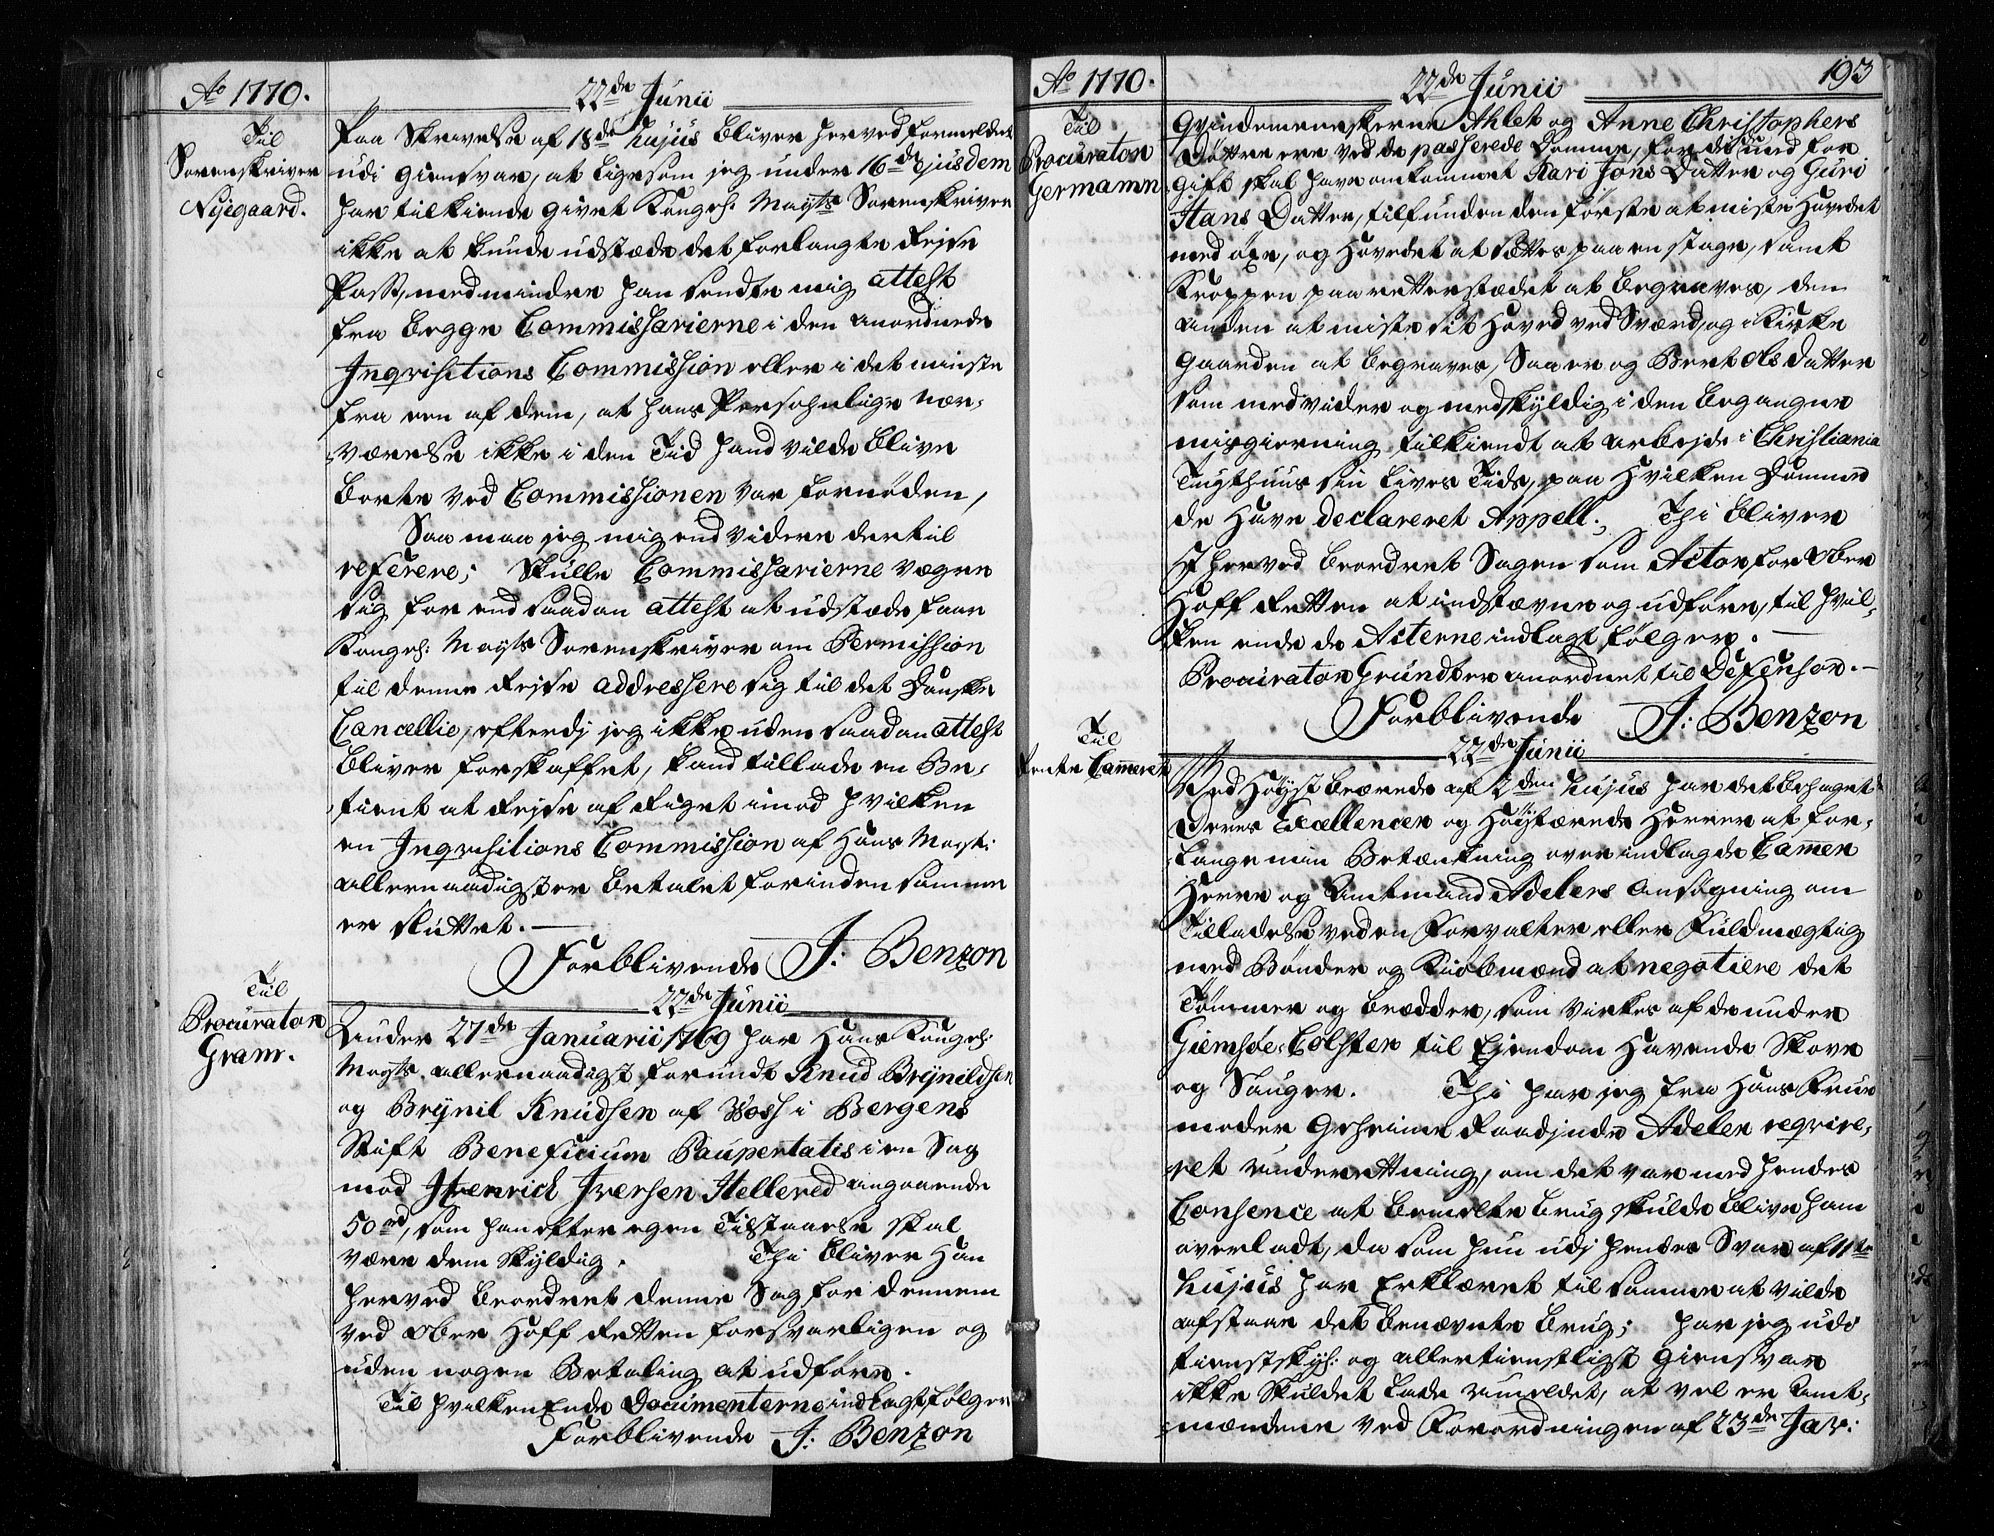 Ao 1770.
22de Junii
Til
Sorenskriver
Nyegaard.
Paa Skrivelse af 18de hujus bliver herved formeldet
udi giensvar, at ligesom jeg under 16de ejusdem
har tilkiende givet Kongel: Mayts Sorenskriver
ikke at kunde udstæde det forlangte Reise
Pass, medmindre han sendte mig attest
fra begge Commissarierne i den anordnede
Inqvisitions Commission eller i det minste
fra een af dem, at hans Persohnlige nær-
værelse ikke i den Tid hand vilde blive
borte ved Commissionen var fornøden,
Saa maa jeg mig end videre dertil
referere; Skulle Commissarierne vægre
sig for end saadan attest at udstæde faar
Kongel: Mayts Sorenskriver om Permission
til denne Reise addressere sig til det Danske
Cancellie, efterdj jeg ikke uden saadan attest
bliver forskaffet, kand tillade en Be-
tient at Reise af Riget imod hvilken
en Inqvisitions Commission af Hans Mayt:
allernaadigster betalet forinden samme
er sluttet.
Forblivende J: Benzon
22de Junii
Til
Procurator
Gram.
Under 27de Januarii 1769 har Hans Kongel:
Mayts allernaadigst forundt Knud Brynildsen
og Brynil Knudsen af Voss i Bergens
Stift Beneficium Paupertatis i en Sag
mod Henrich Iversen Hellered angaaende
50 rd, som han efter egen Tilstaaelse skal
være dem skyldig. Thi bliver Han
herved beordret denne Sag for dennem
ved Ober Hoff Retten forsvarligen og
uden nogen Betaling at udføre.
Til hvilken Ende Documenterne indlagt følger
Forblivende J: Benzon
Ao 1770.
22de Junii
193
Til
Procurator
Germamn.
Qvindemenneskerne Ahlet og Anne Christophers
Døttre ere ved de passerede Domme, fordi med for
gift skal have omkommet Kari Jons Datter og Guri
Hans Datter, tilfunden den første at miste Hovedet
med øxe, og Hovedet at sættes paa en stage, samt
Kroppen paa rettersstædet at begraves, den
anden at miste sit Hoved ved Sværd, og i Kirke
gaarden at begraves, Saa er og Bert Ols datter
som medvider og medskyldig i den begangne
misgierning tilkiendt at arbejde i Christiania
Tugthuus sin Livs Tid, paa hvilken Domme
de Have declareret Appell. Thi bliver
H herved beordret Sagen som Actor for Ober
Hoff Retten at indstævne og udføre, til hvil-
ken ende de Acterne indlagt følger.
Procurator Grundt er anordnet til Defensor.
Forblivende J: Benzon
22de Junii
Til
Rente Cameret
Ved Høystbeærede af 2den hujus har det behaget
Deres Excellencer og Høytærede Herrer at for-
lange min Betænkning over indlagde Camer
Herre og Amtmand Adelers Ansøgning om
Tilladelse ved en Forvalter eller Fuldmægtig
med Bønder og Kiøbmænd at negotiere det
Tømmer og Brædder, som virkes af de under
Giemsøe Closter til Eiendom Havende Skove
og Sauger. Thi har jeg fra Hans Frue
moder Geheime Raadjnde Adeler reqvire-
ret underrettning, om det var med hendes
Consence at bemelte Brug skulde blive ham
overladt, da som hun udj hendes Svar af 11te
hujus har Erklæret til samme at vilde
afstaae det benævnte Brug; har jeg udi
tienstskyl: og allertienstligst Giensvar
ikke skuldet lade umeldet, at vel er Amt-
mændene ved Forordningen af 23de Jar: